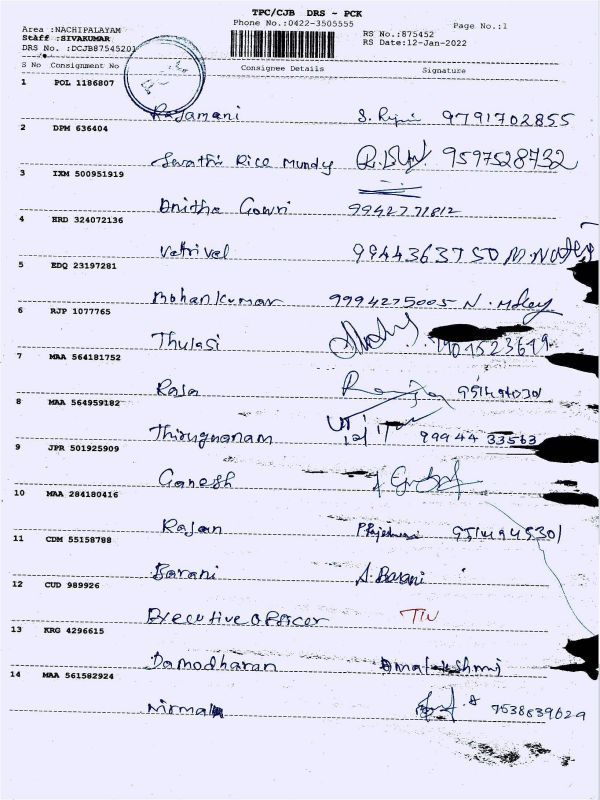 TPC/CJB DRS - PCK
Phone No.:0422-3505555
Page No.:1
Area :NACHIPALAYAM
Staff :SIVAKUMAR
DRS No. :DCJB87545201
RS No.:875452
RS Date:12-Jan-2022
S No Consignment No Consignee Details Signature
1 POL 1186807
Rajamani 9791702855
2 DPM 636404
Swathi Rice Mundy 9597528732
3 IXM 500951919
Anitha Gowri 9942771812
4 HRD 324072136
Vetrivel 9944363750
5 EDQ 23197281
Mohan Kumar 9994275005
6 RJP 1077765
Thulasi
7 MAA 564181752
Raja
8 MAA 564959182
Thirugnanam 99944 33563
9 JPR 501925909
Ganesh
10 MAA 284180416
Rajan
11 CDM 55158788
Barani A. Barani
12 CUD 989926
Executive Officer
13 KRG 4296615
Damodharan
14 MAA 561582924
Nirmala 7538839629